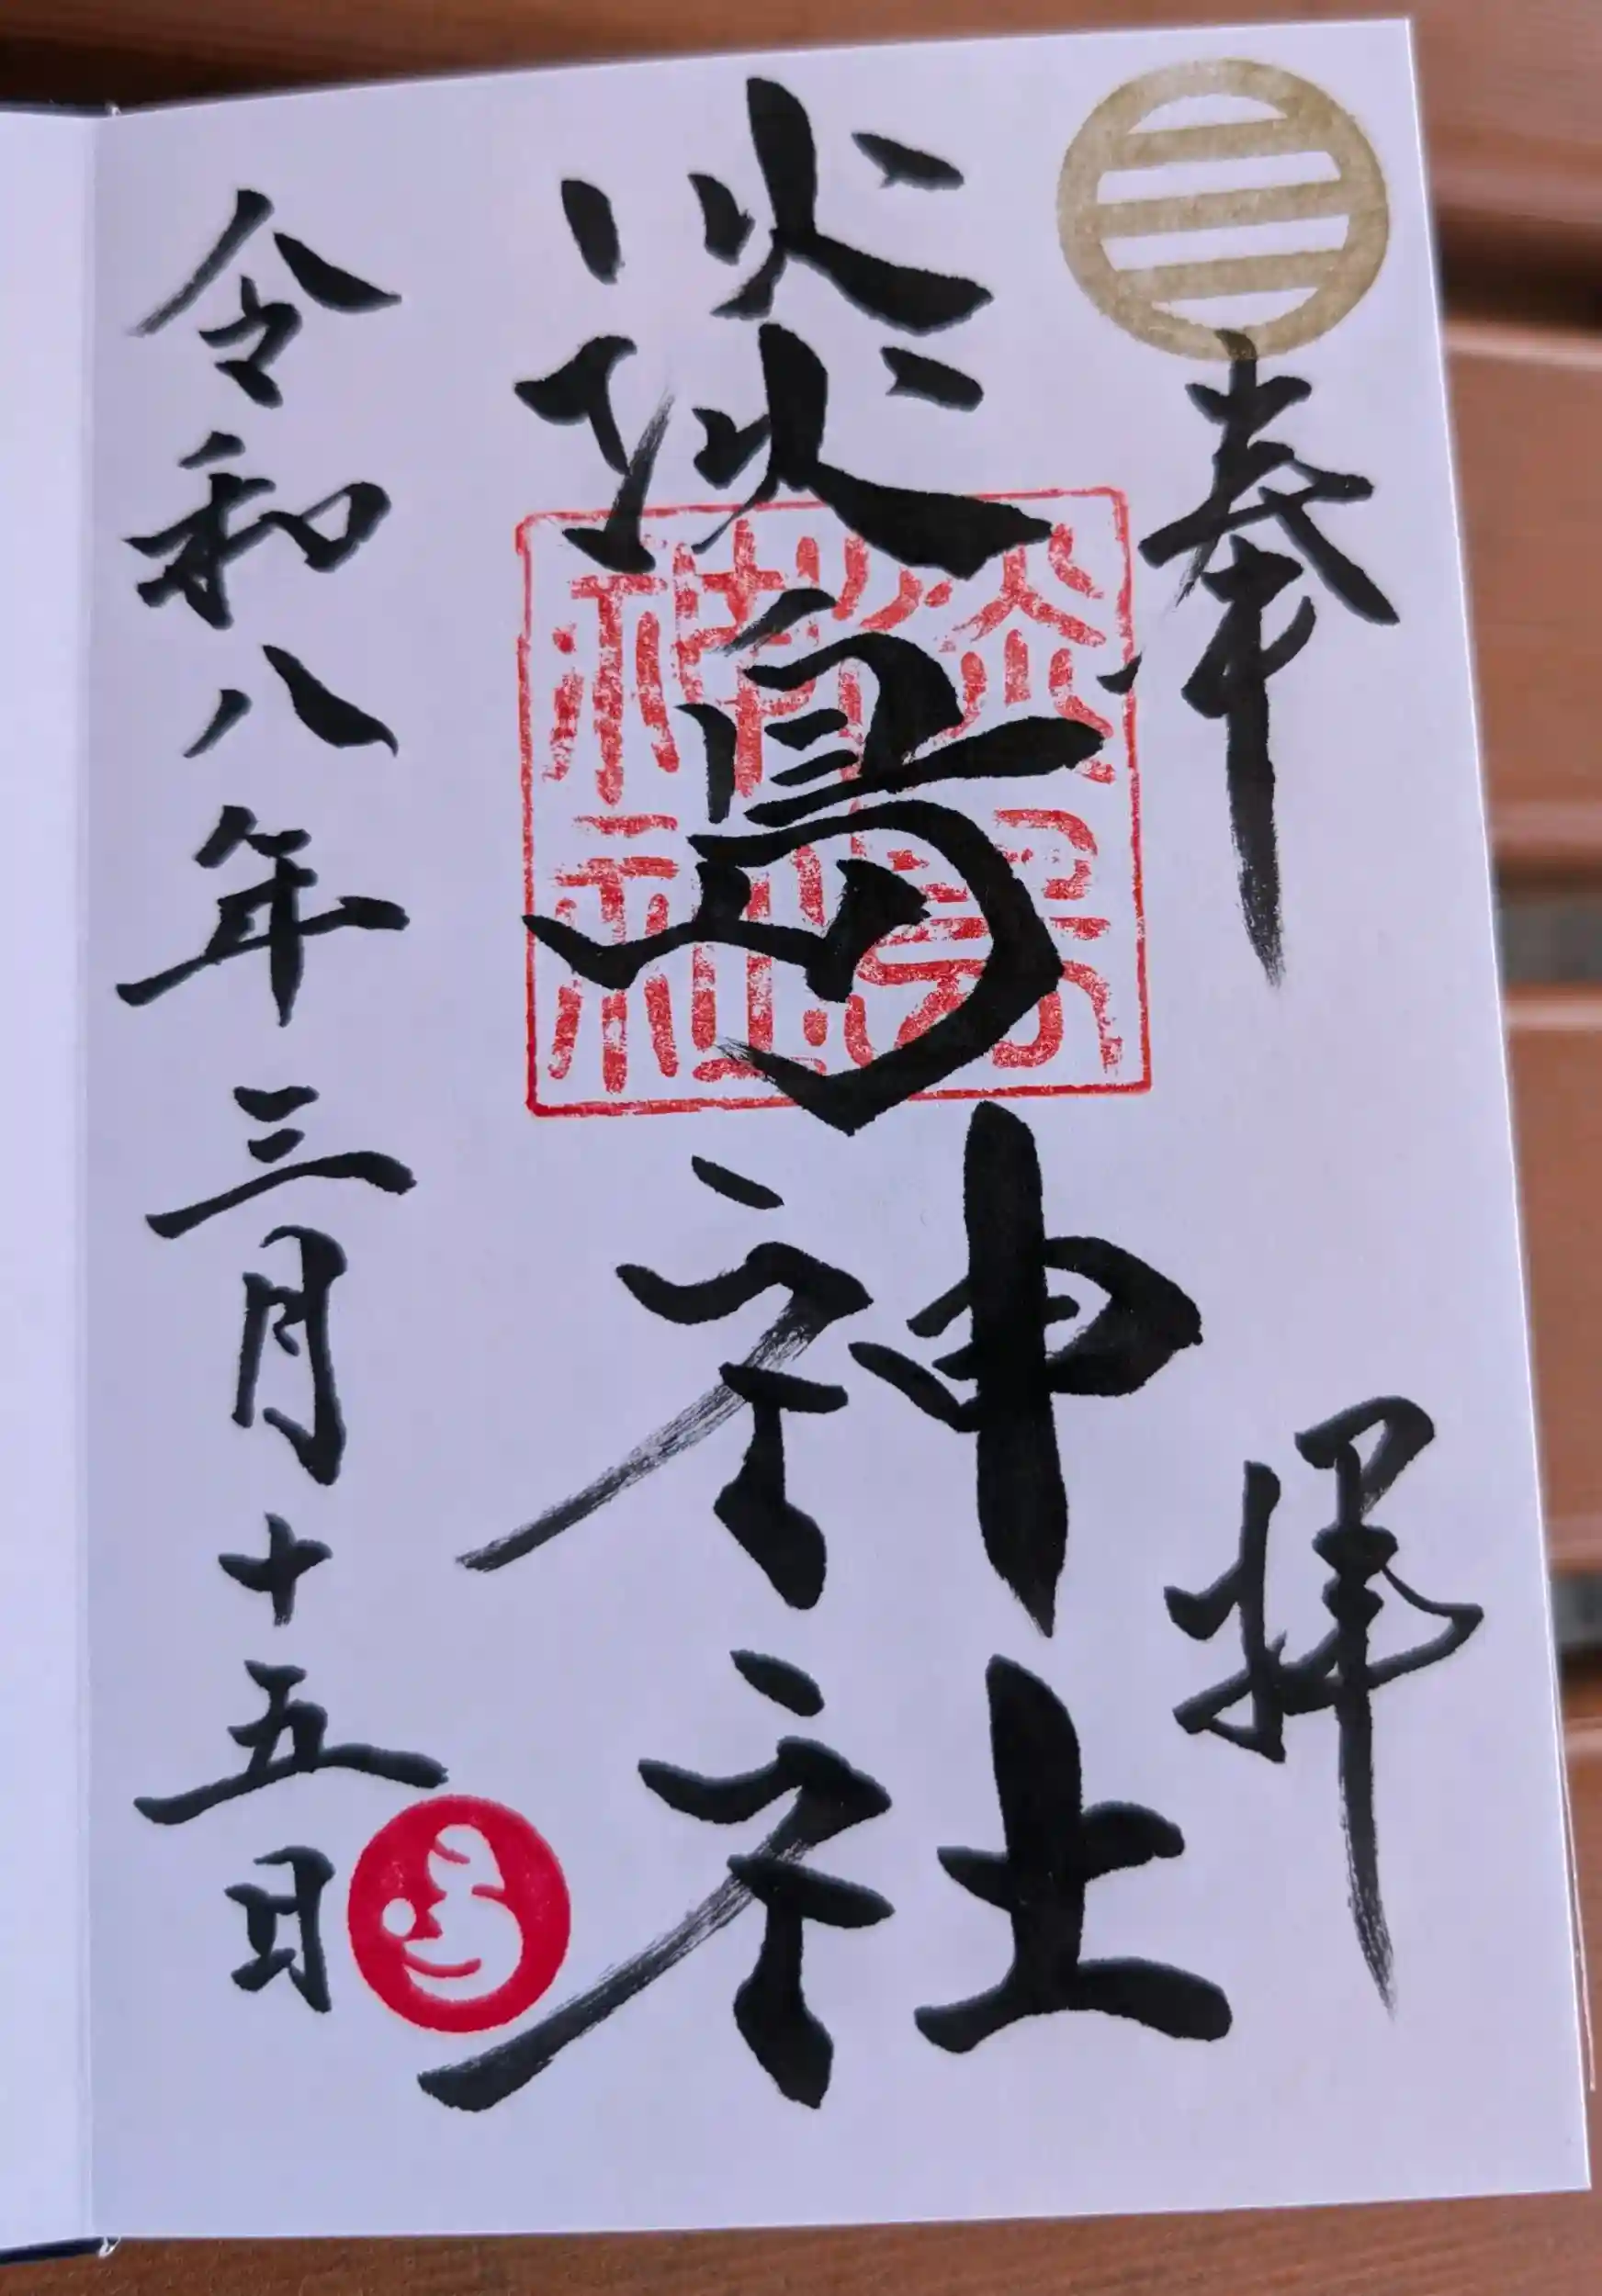 奉拝
淡島神社
淡島神社
令和八年三月十五日